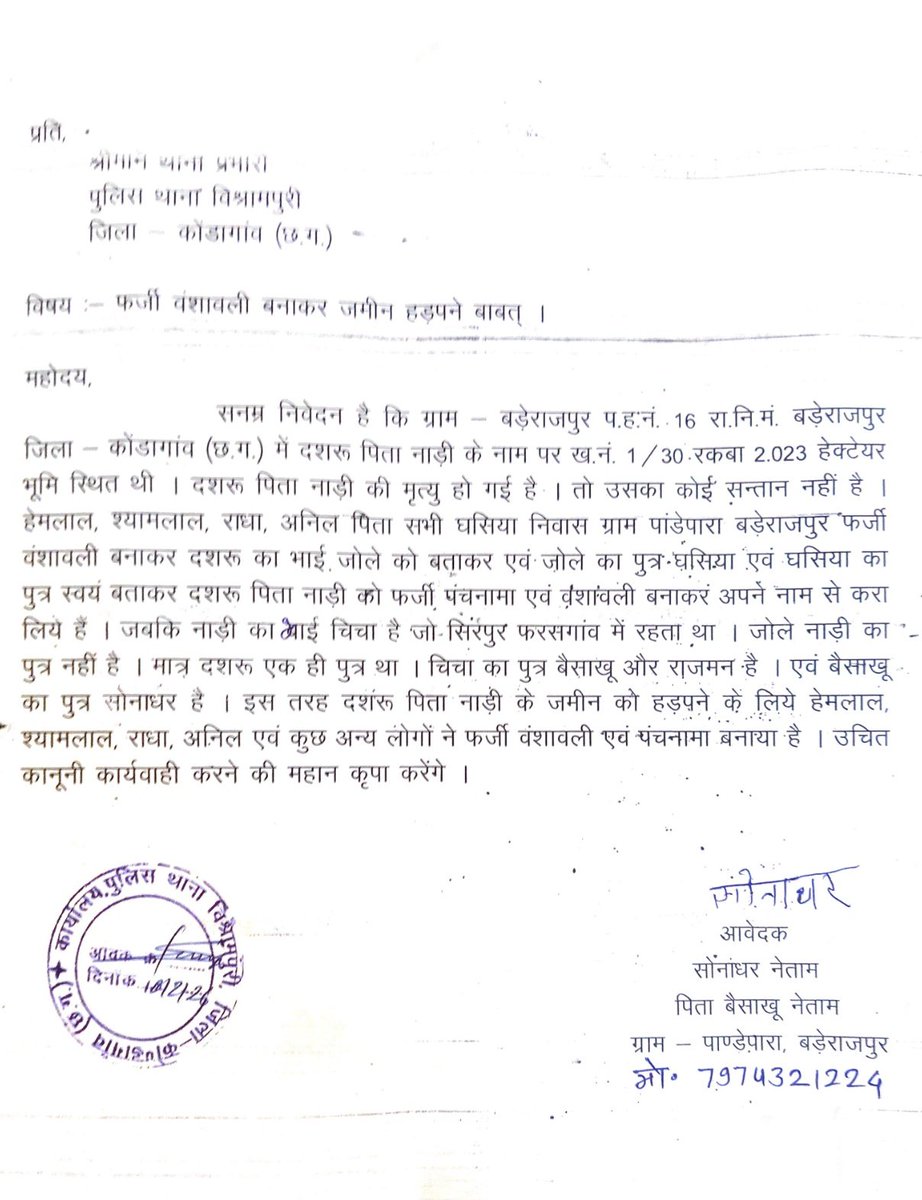 प्रति,
श्रीमान थाना प्रभारी
पुलिस थाना विश्रामपुरी
जिला – कोंडागांव (छ.ग.)
विषय :– फर्जी वंशावली बनाकर जमीन हड़पने बाबत् ।
महोदय,
सनम्र निवेदन है कि ग्राम – बड़ेराजपुर प.ह.नं. 16 रा.नि.मं. बड़ेराजपुर
जिला – कोंडागांव (छ.ग.) में दशरू पिता नाड़ी के नाम पर ख.नं. 1/30 रकबा 2.023 हेक्टेयर
भूमि स्थित थी । दशरू पिता नाड़ी की मृत्यु हो गई है । तो उसका कोई सन्तान नहीं है ।
हेमलाल, श्यामलाल, राधा, अनिल पिता सभी घसिया निवास ग्राम पांडेपारा बड़ेराजपुर फर्जी
वंशावली बनाकर दशरू का भाई जोले को बताकर एवं जोले का पुत्र घसिया एवं घसिया का
पुत्र स्वयं बताकर दशरू पिता नाड़ी को फर्जी पंचनामा एवं वंशावली बनाकर अपने नाम से करा
लिये हैं । जबकि नाड़ी का भाई चिचा है जो सिरपुर फरसगांव में रहता था । जोले नाड़ी का
पुत्र नहीं है । मात्र दशरू एक ही पुत्र था । चिचा का पुत्र बैसाखू और राजमन है । एवं बैसाखू
का पुत्र सोनाधर है । इस तरह दशरू पिता नाड़ी के जमीन को हड़पने के लिये हेमलाल,
श्यामलाल, राधा, अनिल एवं कुछ अन्य लोगों ने फर्जी वंशावली एवं पंचनामा बनाया है । उचित
कानूनी कार्यवाही करने की महान कृपा करेंगे ।
कार्यालय पुलिस थाना विश्रामपुरी, जिला-कोण्डागांव (छ.ग.)
आवक क्र
दिनांक
सोनाधर
आवेदक
सोनांधर नेताम
पिता बैसाखू नेताम
ग्राम – पाण्डेपारा, बड़ेराजपुर
मो. 7974321224